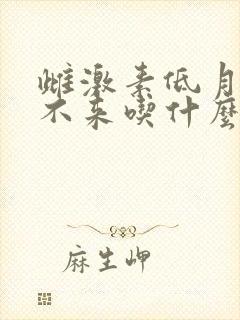 雌激素低月
不来喫什麼
麻生岬